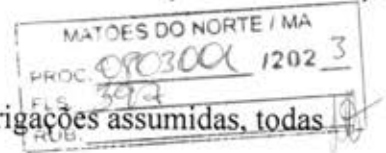 MATOES DO NORTE / MA
PROC. 0803001 /202 3
FLS. 397
RUB.
rigações assumidas, todas